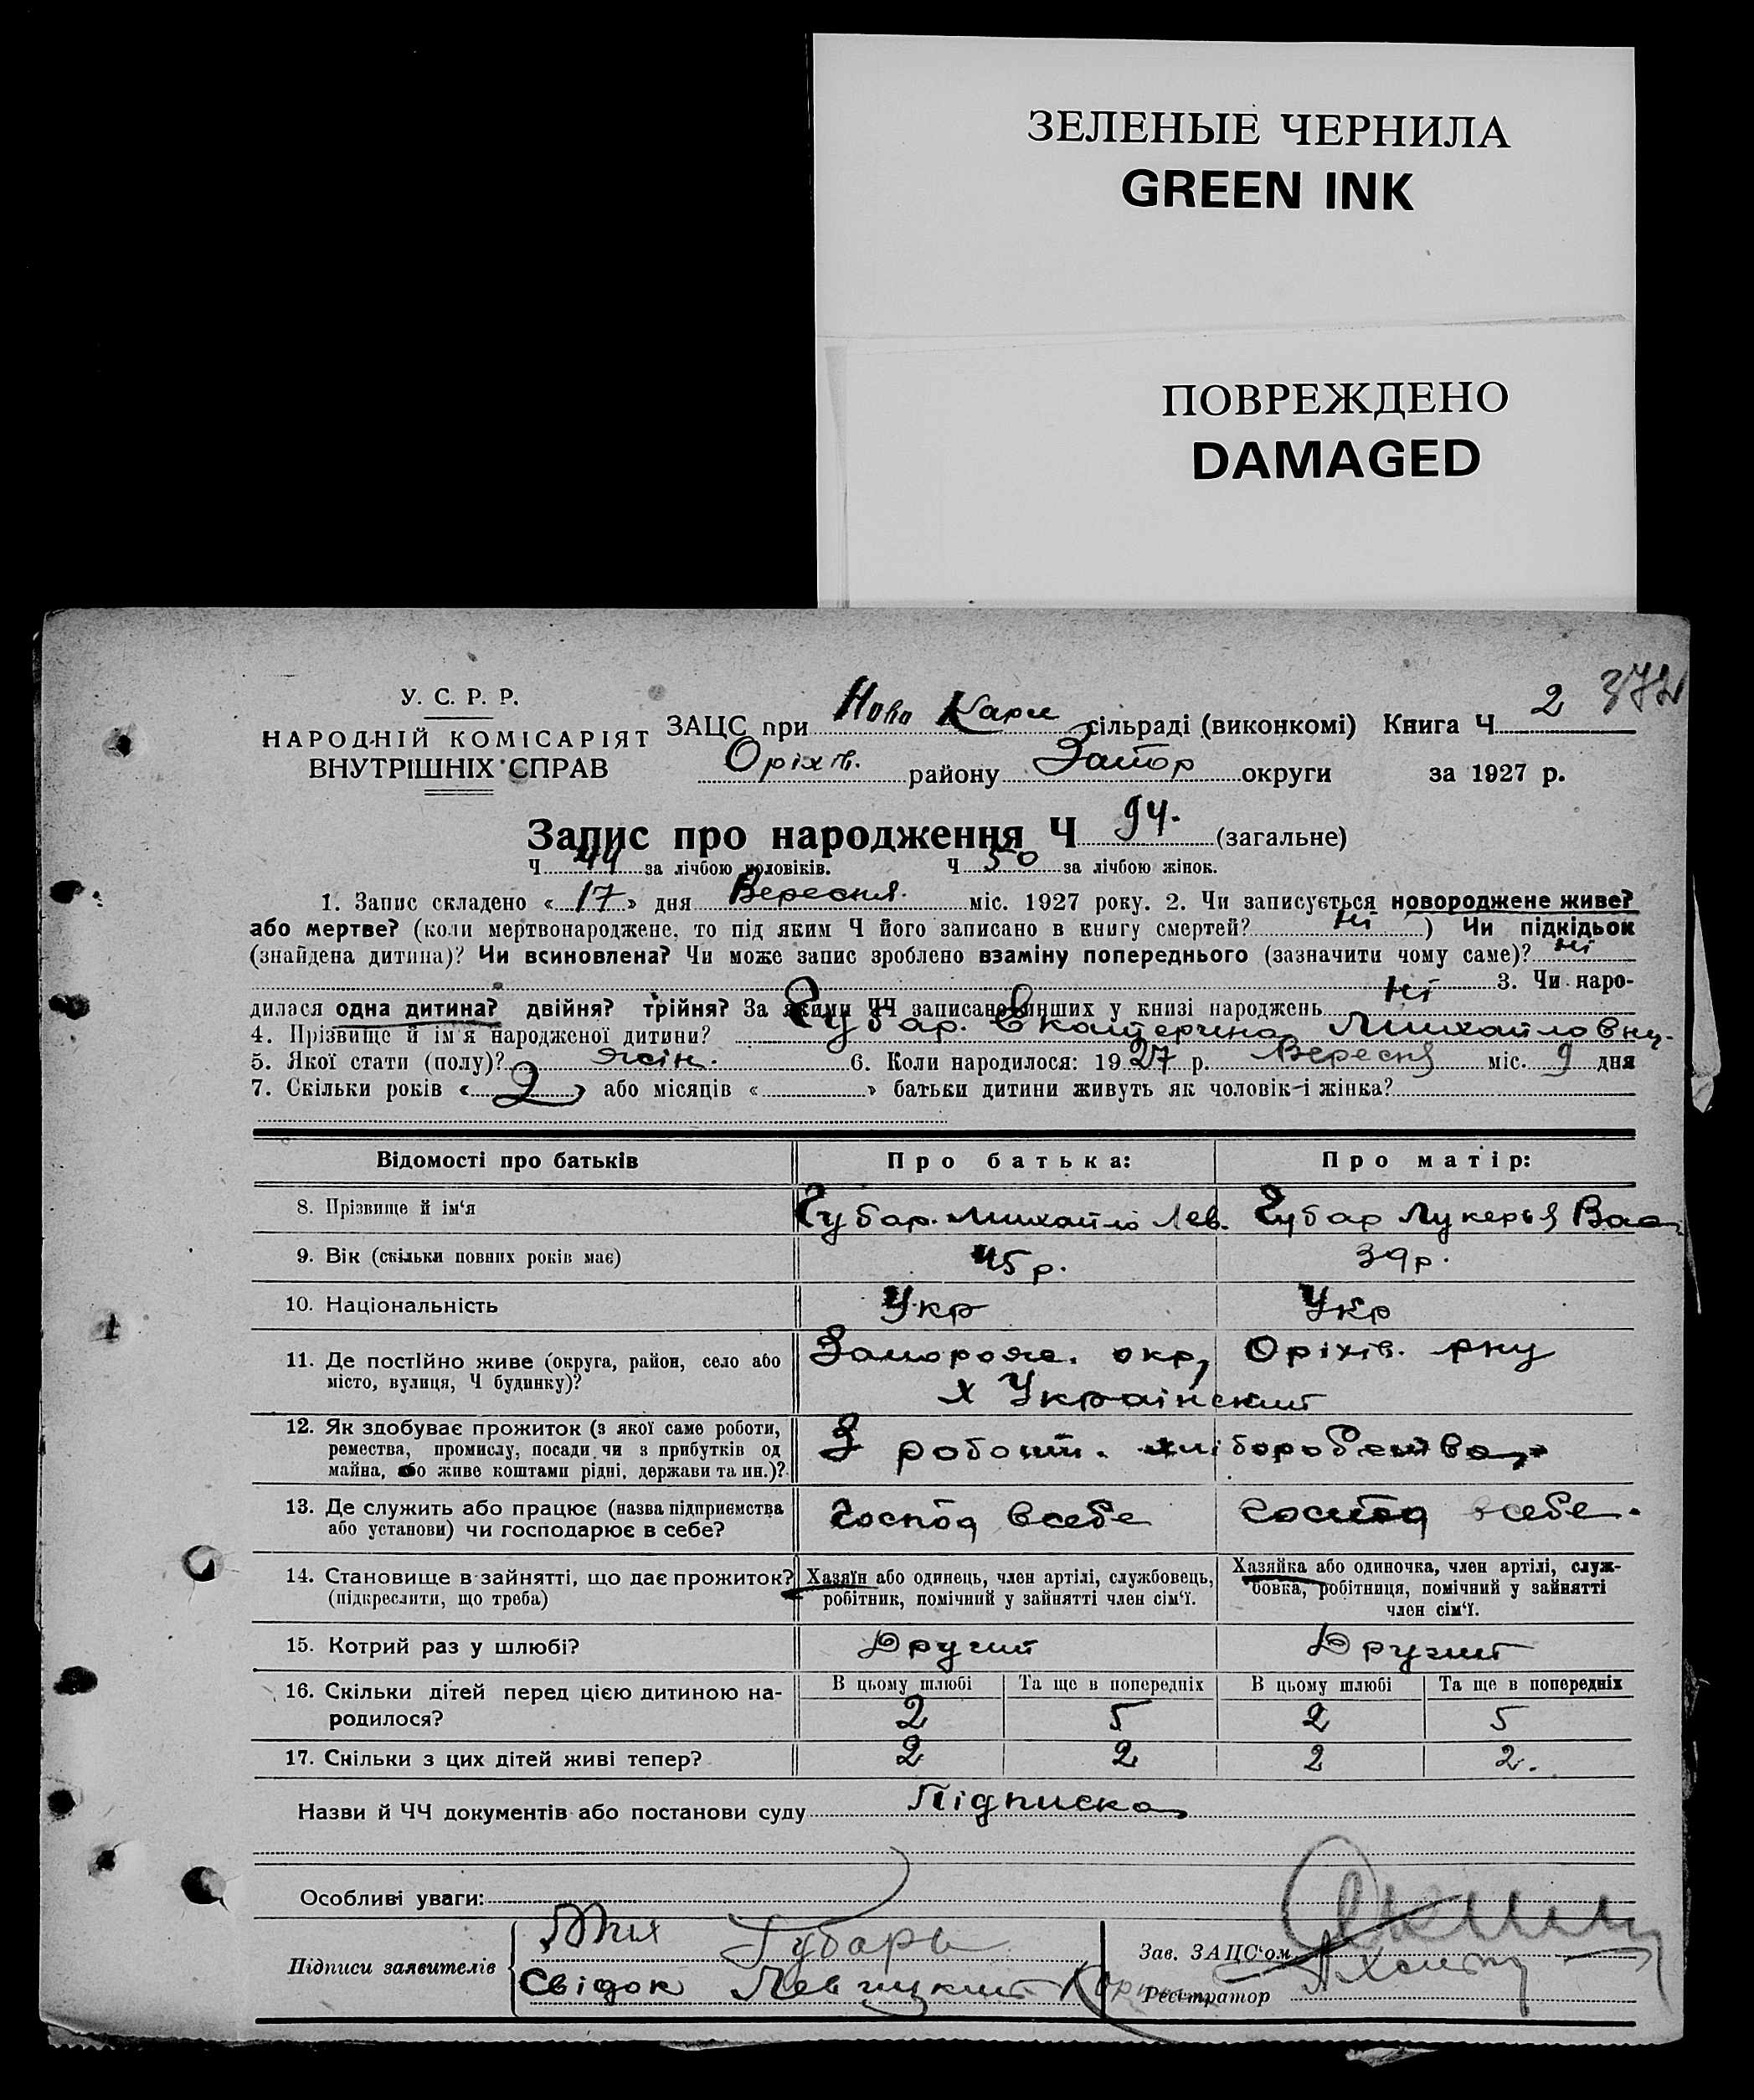 ЗЕЛЕНЫЕ ЧЕРНИЛА
GREEN INK
ПОВРЕЖДЕНО
DAMAGED
У. С. Р. Р.
НАРОДНІЙ КОМІСАРІЯТ
ВНУТРІШНІХ СПРАВ
ЗАЦС при Ново Карл сільраді (виконкомі) Книга Ч 2 372
Оріхів. району Запор округи за 1927 р.
Запис про народження Ч 94. (загальне)
Ч 44 за лічбою чоловіків. Ч 50 за лічбою жінок.
1. Запис складено «17» дня Вересня. міс. 1927 року. 2. Чи записується новороджене живе?
або мертве? (коли мертвонароджене, то під яким Ч його записано в книгу смертей? Ні ) Чи підкідьок
(знайдена дитина)? Чи всиновлена? Чи може запис зроблено взаміну попереднього (зазначити чому саме)? Ні
3. Чи наро-
дилася одна дитина? двійня? трійня? За якими ЧЧ записано инших у книзі народжень Ні
4. Прізвище й ім'я народженої дитини? Губар. Екатерина Михайловну.
5. Якої стати (полу)? жін. 6. Коли народилося: 1927 р. Вересня міс. 9 дня
7. Скільки років «2» або місяців « » батьки дитини живуть як чоловік і жінка?
Відомості про батьків Про батька: Про матір:
8. Прізвище й ім'я Губар. Михайло Лев. Губар Лукерья Вас
9. Вік (скільки повних років має) 45 р. 39 р.
10. Національність Укр Укр
11. Де постійно живе (округа, район, село або Запорож. окр, Оріхів. рну
місто, вулиця, Ч будинку)? х Українский
12. Як здобуває прожиток (з якої саме роботи,
ремества, промислу, посади чи з прибутків од З робот. хліборобства
майна, або живе коштами рідні, держави та ин.)?
13. Де служить або працює (назва підприємства Господ в себе Господ в себе.
або установи) чи господарює в себе?
14. Становище в зайнятті, що дає прожиток? Хазяїн або одинець, член артілі, службовець, Хазяйка або одиночка, член артілі, служ-
(підкреслити, що треба) робітник, помічний у зайнятті член сім'ї. бовка, робітниця, помічний у зайнятті
член сім'ї.
15. Котрий раз у шлюбі? Другий Другий
16. Скільки дітей перед цією дитиною на- В цьому шлюбі Та ще в попередніх В цьому шлюбі Та ще в попередніх
родилося? 2 5 2 5
17. Скільки з цих дітей живі тепер? 2 2 2 2.
Назви й ЧЧ документів або постанови суду Підписка
Особливі уваги:
Мих Губарь
Підписи заявителів Зав. ЗАЦС'ом
Свідок Левицкий Реєстратор